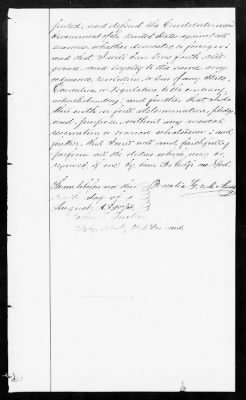 port, and defend the Constitution and
Government of the United States against all
enemies, whether domestic or foreign;
and that I will bear true faith, alle-
giance, and loyalty to the same, any
ordinance, resolution, or law of any State,
Convention, or Legislature to the contrary
notwithstanding; and further that I do
this with a full determination, pledge
and purpose, without any mental
reservation or evasion whatsoever; and
further, that I will well and faithfully
perform all the duties which may be
required of me by law. So help me God.
Sworn before me this
day of
August A.D.